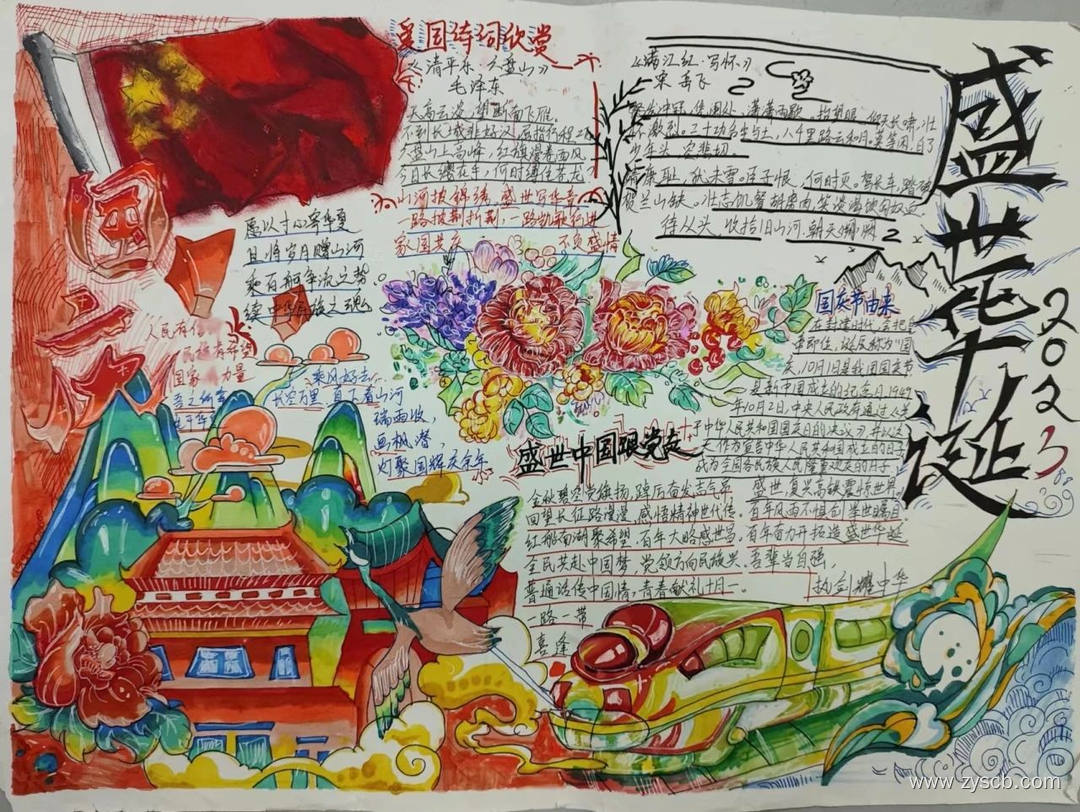 爱国诗词欣赏
《清平乐·六盘山》
毛泽东
天高云淡,望断南飞雁。
不到长城非好汉,屈指行程二万
六盘山上高峰,红旗漫卷西风
今日长缨在手,何时缚住苍龙
山河披锦绣,盛世写华章
一路披荆斩棘,一路凯歌行进
家国共庆 不负盛情
《满江红·写怀》
宋 岳飞
怒发冲冠,凭阑处、潇潇雨歇。抬望眼、仰天长啸,壮
怀激烈。三十功名尘与土,八千里路云和月。莫等闲、白了
少年头、空悲切
靖康耻,犹未雪。臣子恨、何时灭。驾长车、踏破
贺兰山缺。壮志饥餐胡虏肉,笑谈渴饮匈奴血
待从头、收拾旧山河、朝天阙
盛世华诞
2023
国庆
愿以寸心寄华夏
且将岁月赠山河
乘百舸争流之势
续中华民族之魂
人民有信
民族有希望
国家 力量
乘风好去
长空万里,直下看山河
瑞雨收,
灯聚国辉庆余年
国庆节由来
天,10月1日是我国国庆节
是新中国成立的纪念月1949
年10月2日,中央人民政府通过《关
于中华人民共和国国庆日的决议》,并以这
天作为宣告中华人民共和国成立的日子
成为全国各民族人民隆重欢庆的日子
盛世中国跟党走
全民共赴中国梦,党领方向民族兴,
普通话传中国情,青春献礼十月一。
一路一带
喜逢
盛世,复兴高铁震惊世界。
百年风雨不粗台,举世瞩目
百年奋力开拓造盛世华诞
吾辈当自强,
执剑耀中华
www.zyscb.com